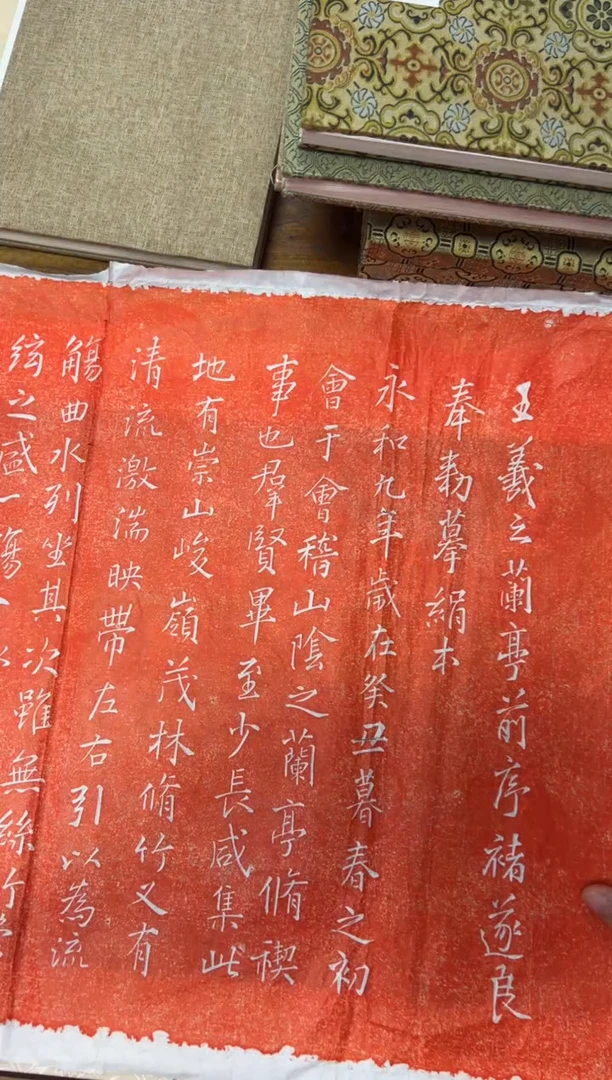 王羲之蘭亭前序褚遂良
奉勅摹絹本
永和九年歲在癸丑暮春之初
會于會稽山陰之蘭亭脩禊
事也羣賢畢至少長咸集此
地有崇山峻嶺茂林脩竹又有
清流激湍映帶左右引以為流
觴曲水列坐其次雖無絲竹管
絃之盛一觴一